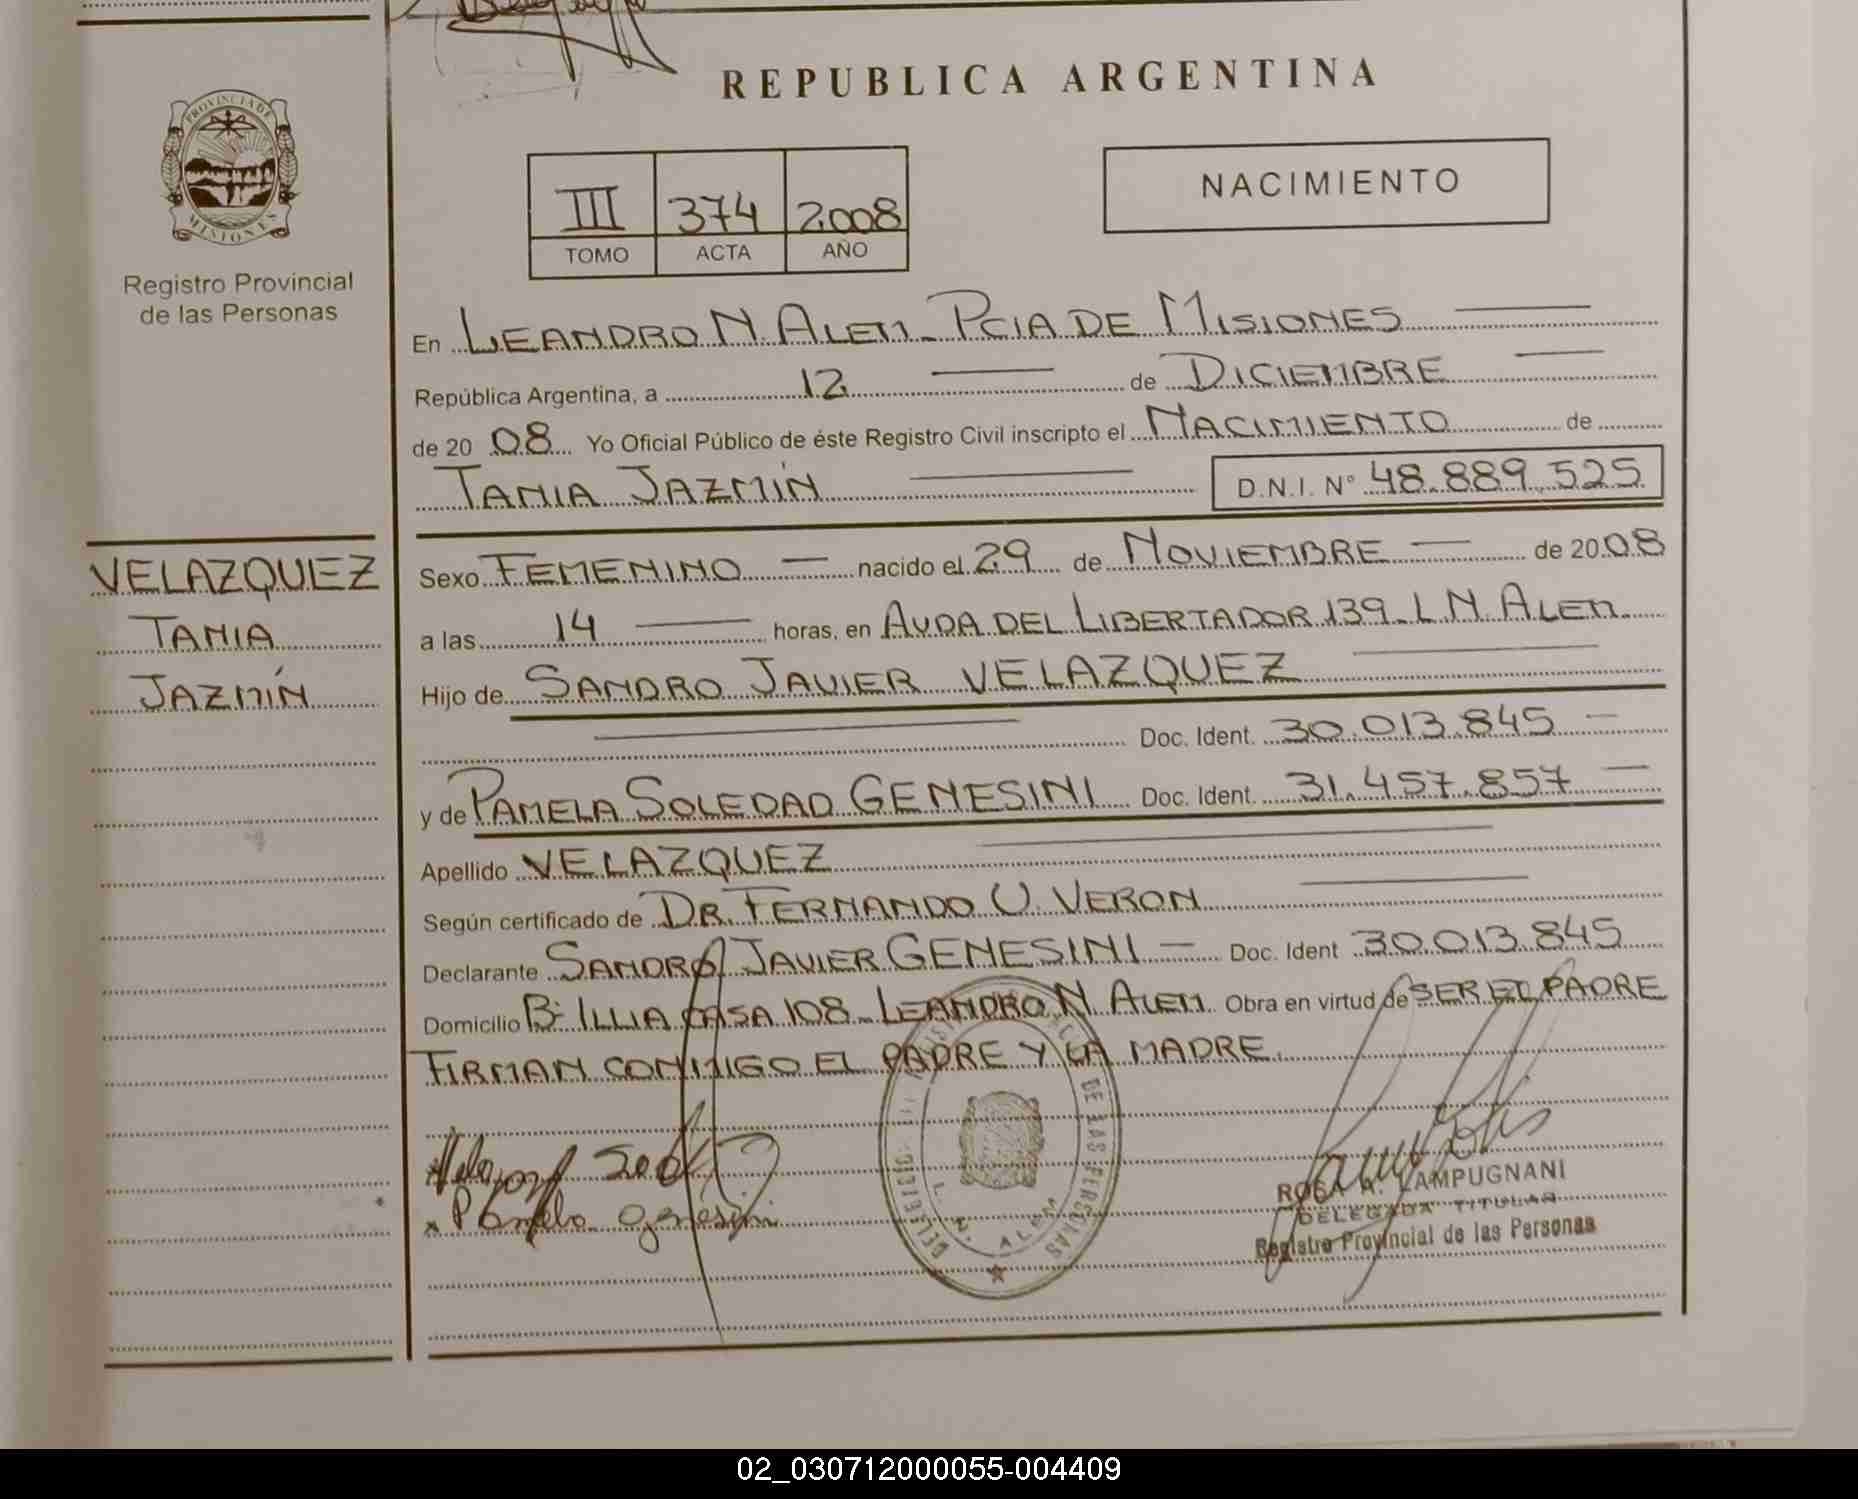 REPUBLICA ARGENTINA
PROVINCIA DE
MISIONES
Registro Provincial
de las Personas
III 374 2008
TOMO ACTA AÑO
NACIMIENTO
En LEANDRO N. ALEM - PCIA DE MISIONES
República Argentina, a 12 de DICIEMBRE
de 2008 Yo Oficial Público de éste Registro Civil inscripto el NACIMIENTO de
TANIA JAZMÍN D.N.I. Nº 48.889.525
VELAZQUEZ
TANIA
JAZMÍN
Sexo FEMENINO — nacido el 29 de NOVIEMBRE — de 2008
a las 14 horas, en AVDA DEL LIBERTADOR 139 - L.N. ALEM
Hijo de SANDRO JAVIER VELAZQUEZ
Doc. Ident. 30.013.845 —
y de PAMELA SOLEDAD GENESINI Doc. Ident. 31.457.857 —
Apellido VELAZQUEZ
Según certificado de DR. FERNANDO U. VERON
Declarante SANDRO JAVIER GENESINI — Doc. Ident 30.013.845
Domicilio Bº ILLIA CASA 108 - LEANDRO N. ALEM Obra en virtud de SER EL PADRE
FIRMAN CONMIGO EL PADRE Y LA MADRE.
Pamela Genesini
DE LAS PERSONAS
L. N. ALEM
ROSA A. LAMPUGNANI
DELEGADA TITULAR
Registro Provincial de las Personas
02_030712000055-004409